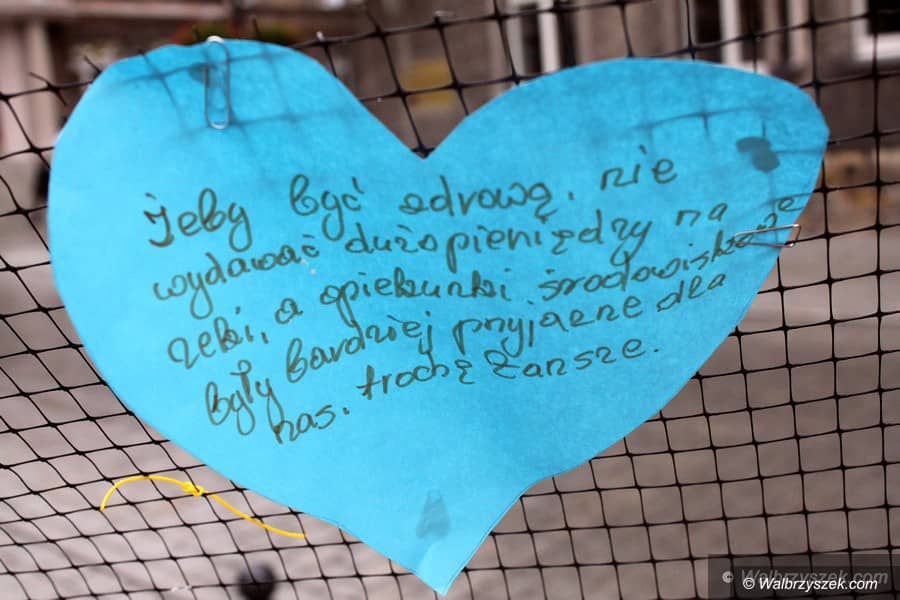 Żeby być zdrową, nie
wydawać dużo pieniędzy na
leki, a opiekunki środowiskowe
były bardziej przyjazne dla
nas. trochę tańsze.
© Walbrzyszek.com
© Walbrzyszek.com